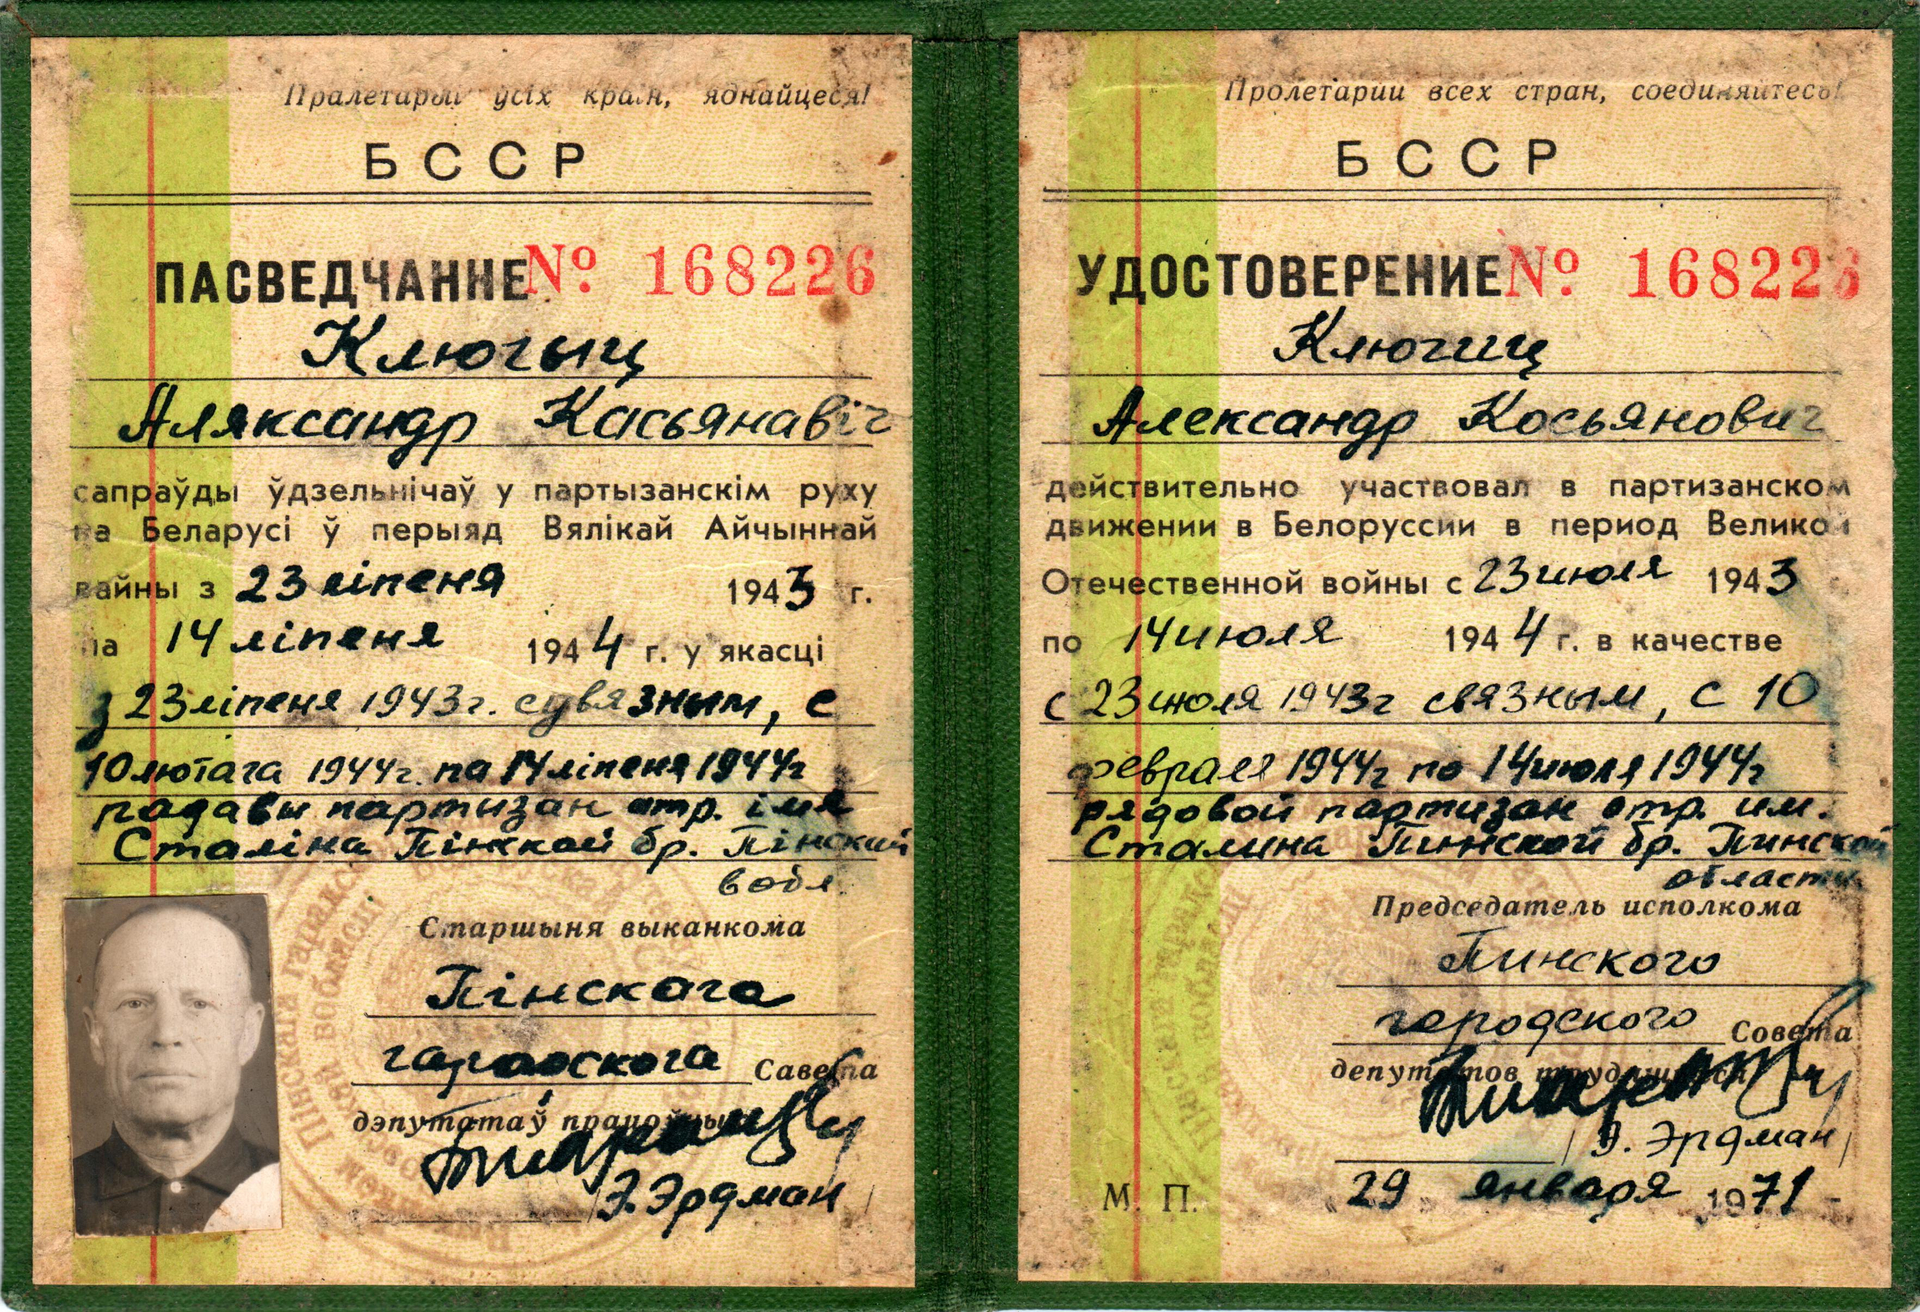 Пралетарыі ўсіх краін, яднайцеся!
БССР
ПАСВЕДЧАННЕ № 168226
Ключыц
Аляксандр Касьянавіч
сапраўды ўдзельнічаў у партызанскім руху
на Беларусі ў перыяд Вялікай Айчыннай
вайны з 23 ліпеня 1943 г.
па 14 ліпеня 1944 г. у якасці
з 23 ліпеня 1943 г. сувязным, с
10 лютага 1944 г. па 14 ліпеня 1944 г
радавы партизан атр. імя
Сталіна Пінскай бр. Пінскай
вобл.
Старшыня выканкома
Пінскага
гарадскога Савета
дэпутатаў працоўных
Э. Эрдман
Пролетарии всех стран, соединяйтесь!
БССР
УДОСТОВЕРЕНИЕ № 168226
Ключиц
Александр Косьянович
действительно участвовал в партизанском
движении в Белоруссии в период Великой
Отечественной войны с 23 июля 1943
по 14 июля 1944 г. в качестве
с 23 июля 1943 г связным, с 10
февраля 1944 г по 14 июля 1944 г
рядовой партизан отр. им.
Сталина Пинской бр. Пинской
области
Председатель исполкома
Пинского
городского Совета
депутатов трудящихся
/Э. Эрдман/
М. П. 29 января 1971